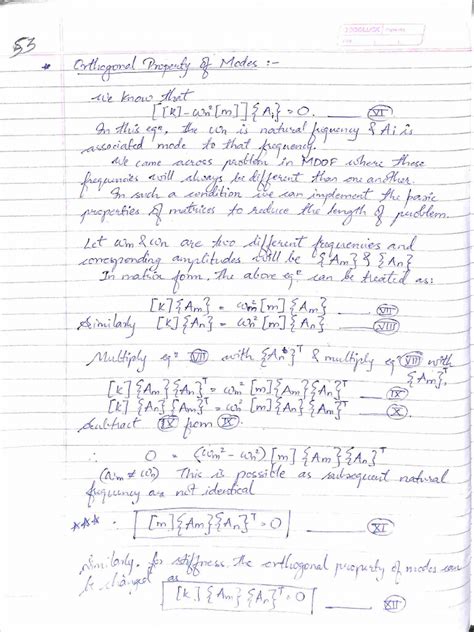 53
* Orthogonal Property of Modes :-
We know that
[[k] - ωn²[m]]{Ai} = 0. (VI)
In this eqⁿ, the ωn is natural frequency & Ai is
associated mode to that frequency.
We came across problem in MDOF where these
frequencies will always be different than one another.
In such a condition we can implement the basic
properties of matrices to reduce the length of problem.
Let ωm & ωn are two different frequencies and
corresponding amplitudes will be {Am} & {An}
In matrix form, the above eqⁿ can be treated as:
[k]{Am} = ωm²[m]{Am} (VII)
Similarly [k]{An} = ωn²[m]{An} (VIII)
Multiply eqⁿ (VII) with {An}ᵀ & multiply eqⁿ (VIII) with
{Am}ᵀ
[k]{Am}{An}ᵀ = ωm²[m]{Am}{An}ᵀ (IX)
[k]{An}{Am}ᵀ = ωn²[m]{An}{Am}ᵀ (X)
Subtract (IX) from (IX).
∴ 0 = (ωm² - ωn²)[m]{Am}{An}ᵀ
(ωm ≠ ωn) This is possible as subsequent natural
frequency are not identical
*** [m]{Am}{An}ᵀ = 0 (XI)
Similarly, for stiffness, the orthogonal property of modes can
be changed as
[k]{Am}{An}ᵀ = 0 (XII)